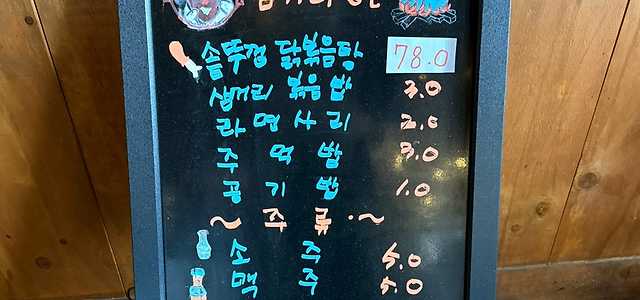 솥뚜껑 닭볶음탕 78.0
삼거리 볶음밥 3.0
라면사리 2.0
주먹밥 3.0
공기밥 1.0
~ 주류 ~
소주 5.0
맥주 5.0